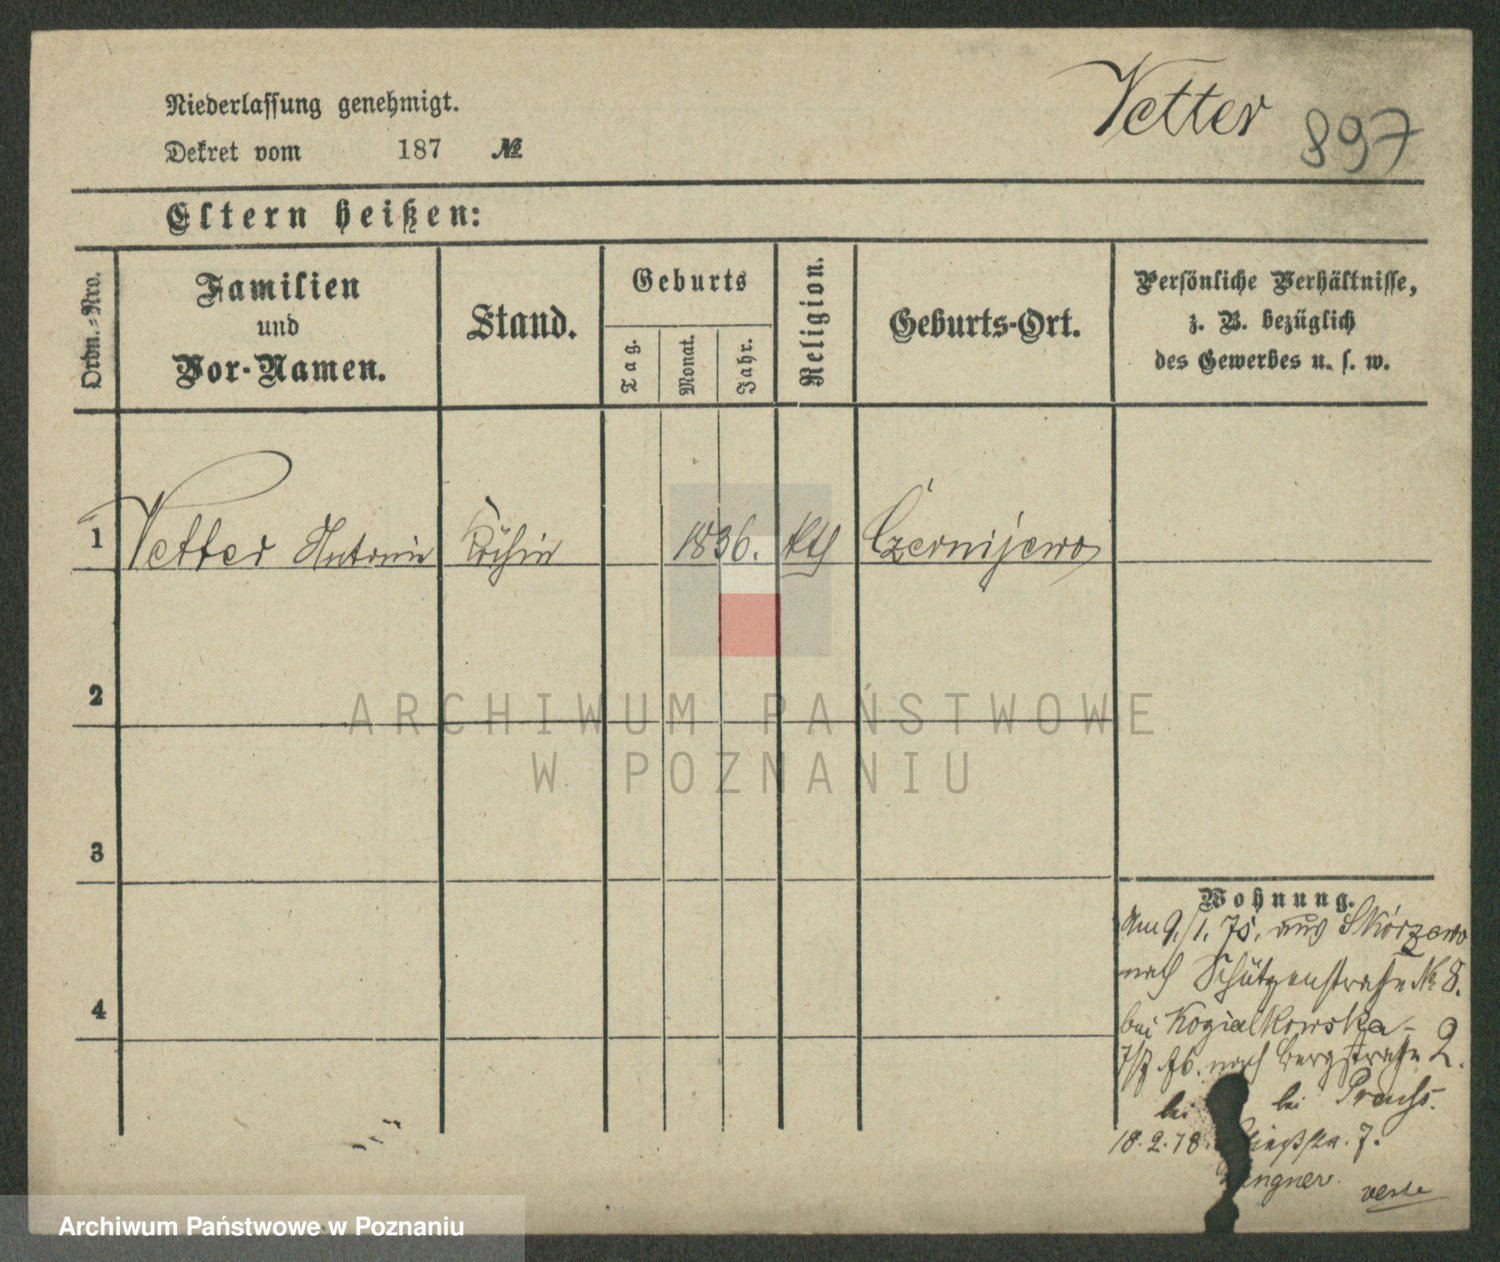 Vetter 897
Niederlassung genehmigt.
Dekret vom 187 №
Eltern heißen:
Ordn.-Nro.
Familien
und
Vor-Namen.
Stand.
Geburts
Tag.
Monat.
Jahr.
Religion.
Geburts-Ort.
Persönliche Verhältnisse,
z. B. bezüglich
des Gewerbes u. s. w.
1 Vetter Antonie Köchin 1836. kth Czernijewo
2
3
4
Wohnung.
Am 9./1. 75. aus Skórzewo
nach Schützenstraße № 8.
bei Kozialkowska -
7/7 76. nach Bergstraße 2.
bei bei Preuss.
18.2.78 7.
verte
ARCHIWUM PAŃSTWOWE
W POZNANIU
Archiwum Państwowe w Poznaniu